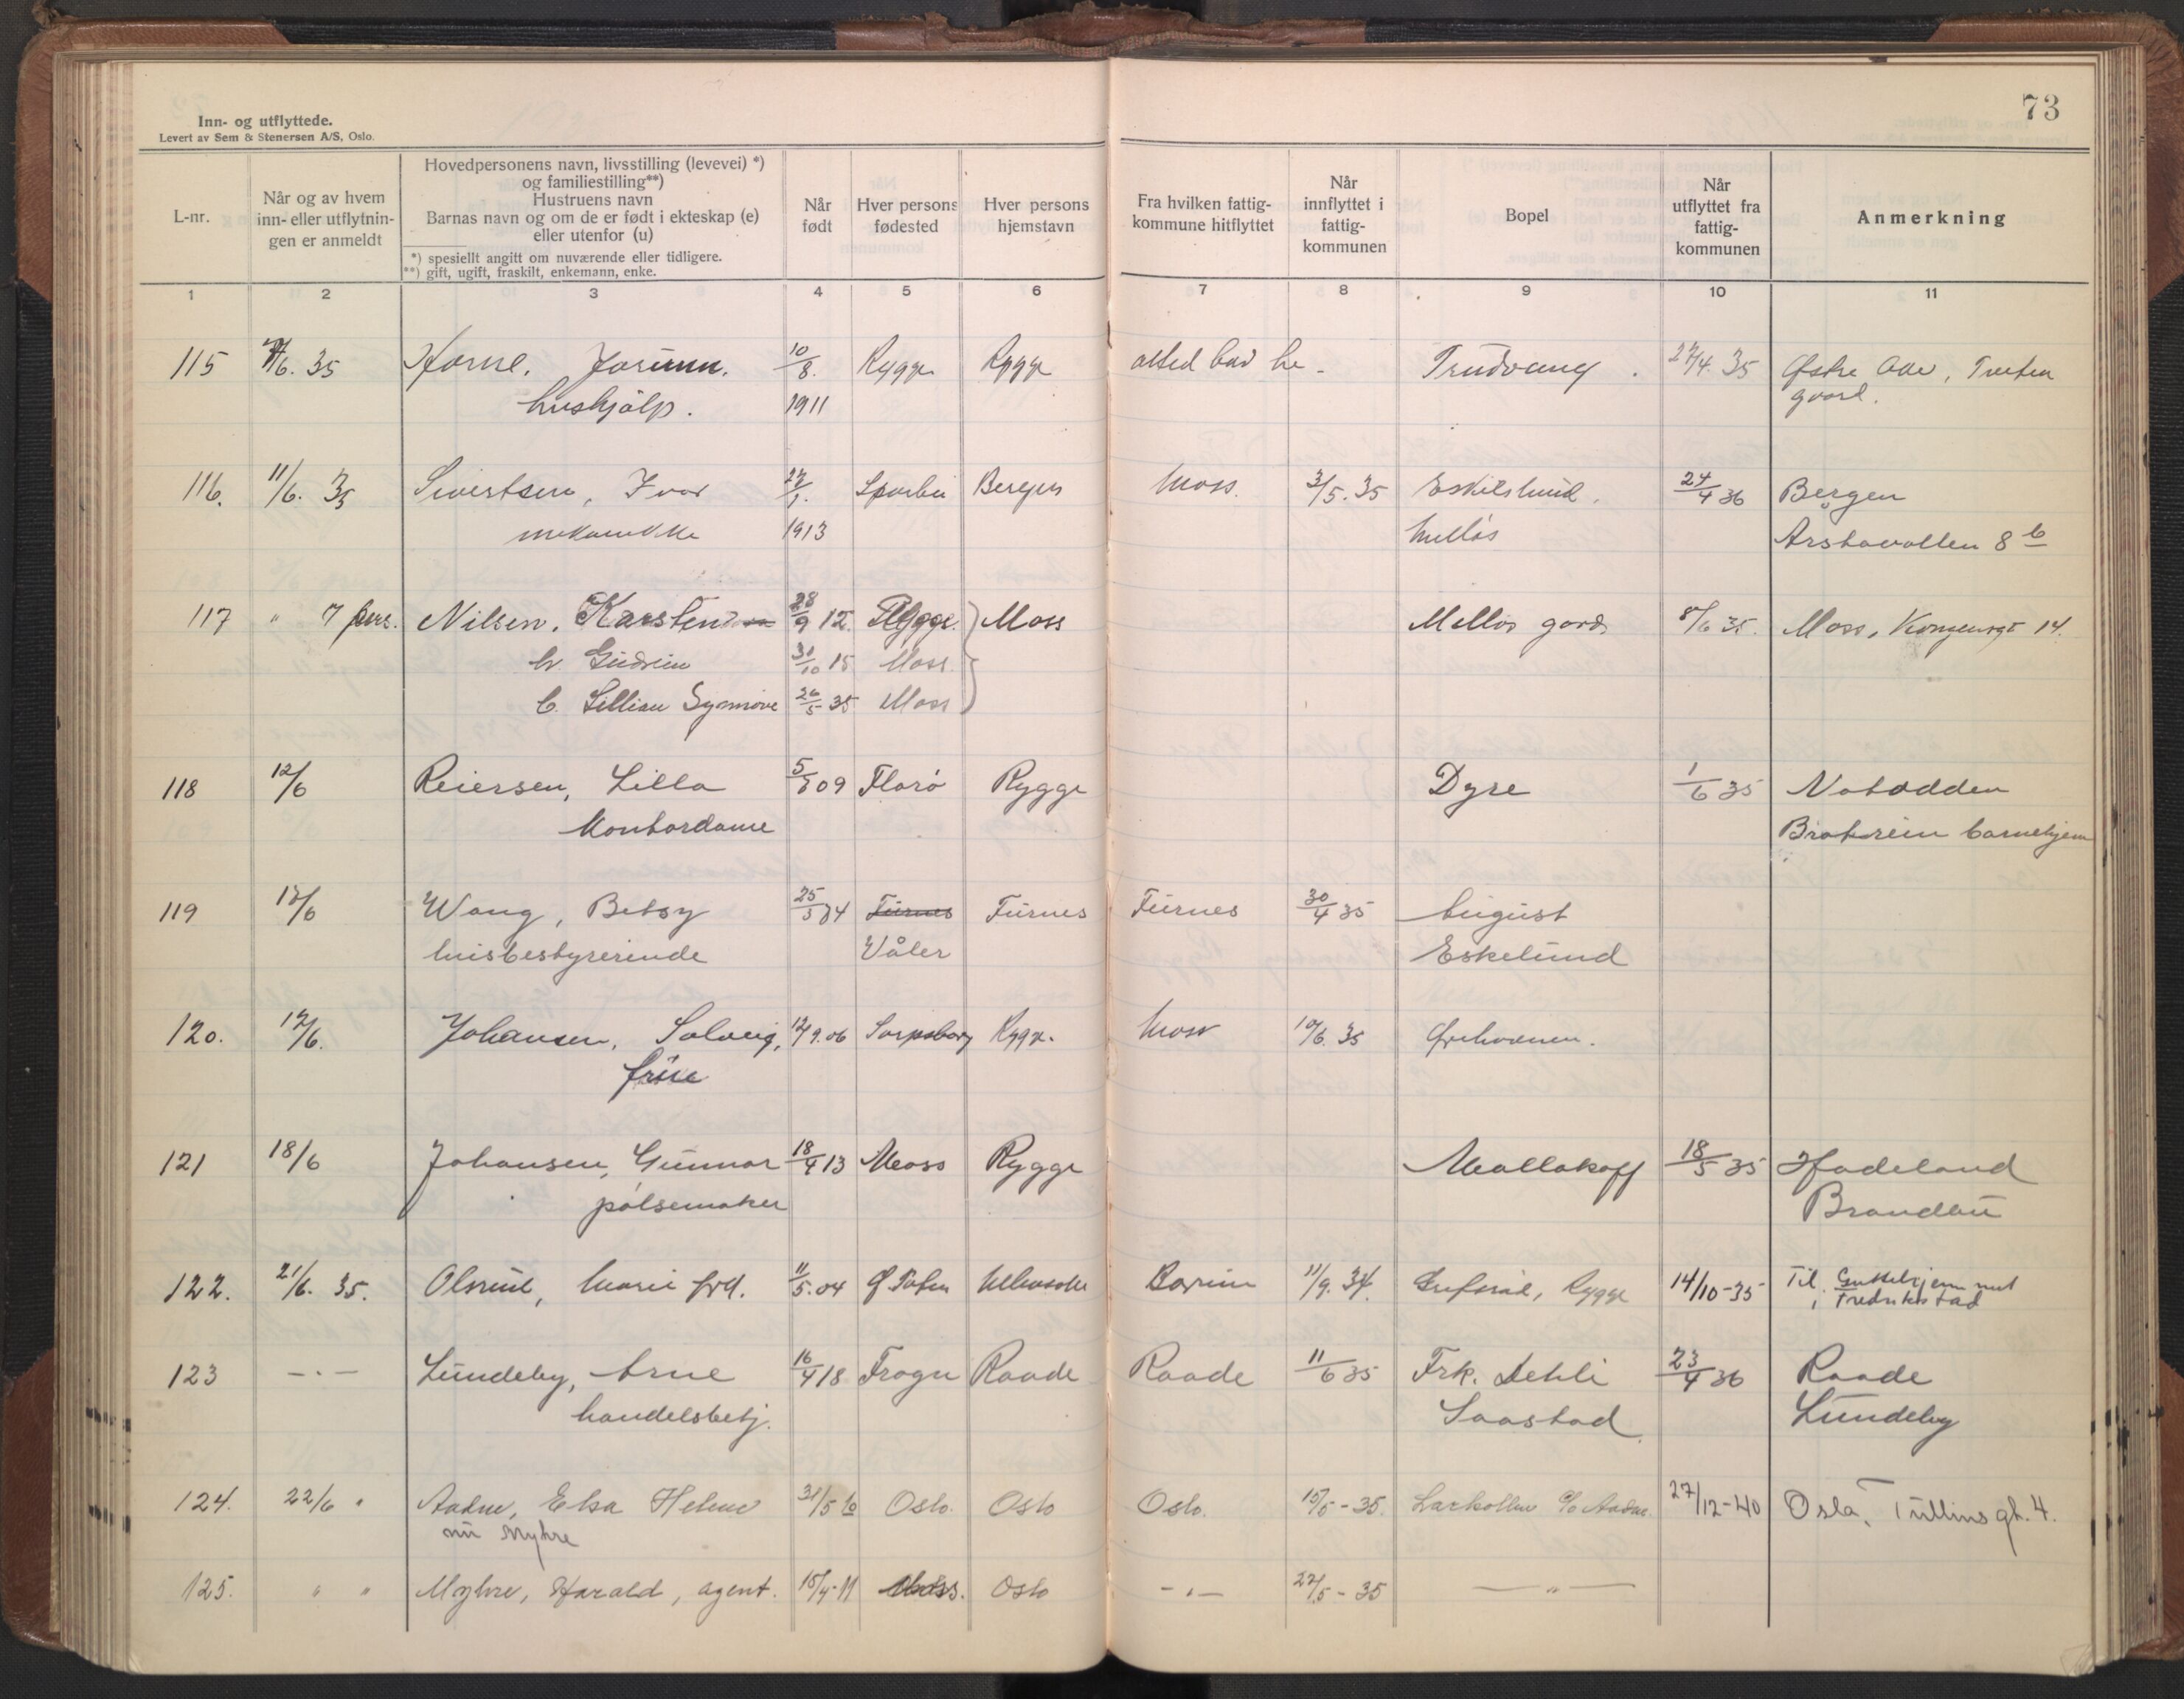 73
Inn- og utflyttede.
Levert av Sem & Stenersen A/S, Oslo.
L-nr.
Når og av hvem inn- eller utflytnin-gen er anmeldt
Hovedpersonens navn, livsstilling (levevei) *)
og familiestilling**)
Hustruens navn
Barnas navn og om de er født i ekteskap (e)
eller utenfor (u)
*) spesielt angitt om nuværende eller tidligere.
**) gift, ugift, fraskilt, enkemann, enke.
Når født
Hver persons fødested
Hver persons hjemstavn
Fra hvilken fattig-kommune hitflyttet
Når innflyttet i fattig-kommunen
Bopel
Når utflyttet fra fattig-kommunen
Anmerkning
1 2 3 4 5 6 7 8 9 10 11
115 /6. 35 Horne, Jorunn. 10/8. Rygge Rygge Trudvang. 27/4. 35 Østre
hushjälp. 1911 gaard.
116. 11/6. 35 Sivertsen, Ivar 27/1. Bergen Moss. 3/5. 35 Eskilslund. 24/4 36 Bergen
1913 Melløs Årstavollen 8 b
117 " 7 pers. Nilsen, Karsten 28/9 12. Rygge. } Moss Melløs gård. 8/6 35. Moss, Kongensgt 14.
h. Gudrun 31/10 15 Moss.
b. Lillian Synnøve 26/5 35 Moss
118 12/6 Reiersen, Lilla 5/6 09 Florø Rygge Dyre 1/6 35 Notodden
Kontordame barnehjem
119 12/6 Wang, Betsy 25/5 84 Furnes Furnes Furnes 30/4 35 August
husbestyrerinde Våler Eskelund
120. 12/6. Johansen, Solveig, 12/9. 06 Sarpsborg Rygge. Moss 10/6. 35 Ørehavnen.
frue
121 18/6 Johansen, Gunnar 18/4 13 Moss Rygge Mallakoff 18/5 35 Hadeland
pølsemaker Brandbu
122. 21/6. 35. Olsrud, Marie frk. 11/5. 04 Ø. Toten Ullensaker Bærum 11/9. 34. Rygge 14/10-35 Til
i Fredrikstad
123 -"- Lundeby, Arne 16/4 18 Frogn Raade Raade 11/6 35 Frk. Dehli 23/4 36 Raade
handelsbetj. Saastad Lundeby
124. 22/6 " Aadne, Elsa Helene 31/5 10 Oslo. Oslo Oslo. 15/5-35. Larkollen c/o Aadne. 27/12-40 Oslo, Tullinsgt. 4.
nu Myhre
125. " " Myhre, Harald, agent. 15/4-11 Moss. Oslo -"- 22/5-35 -"-